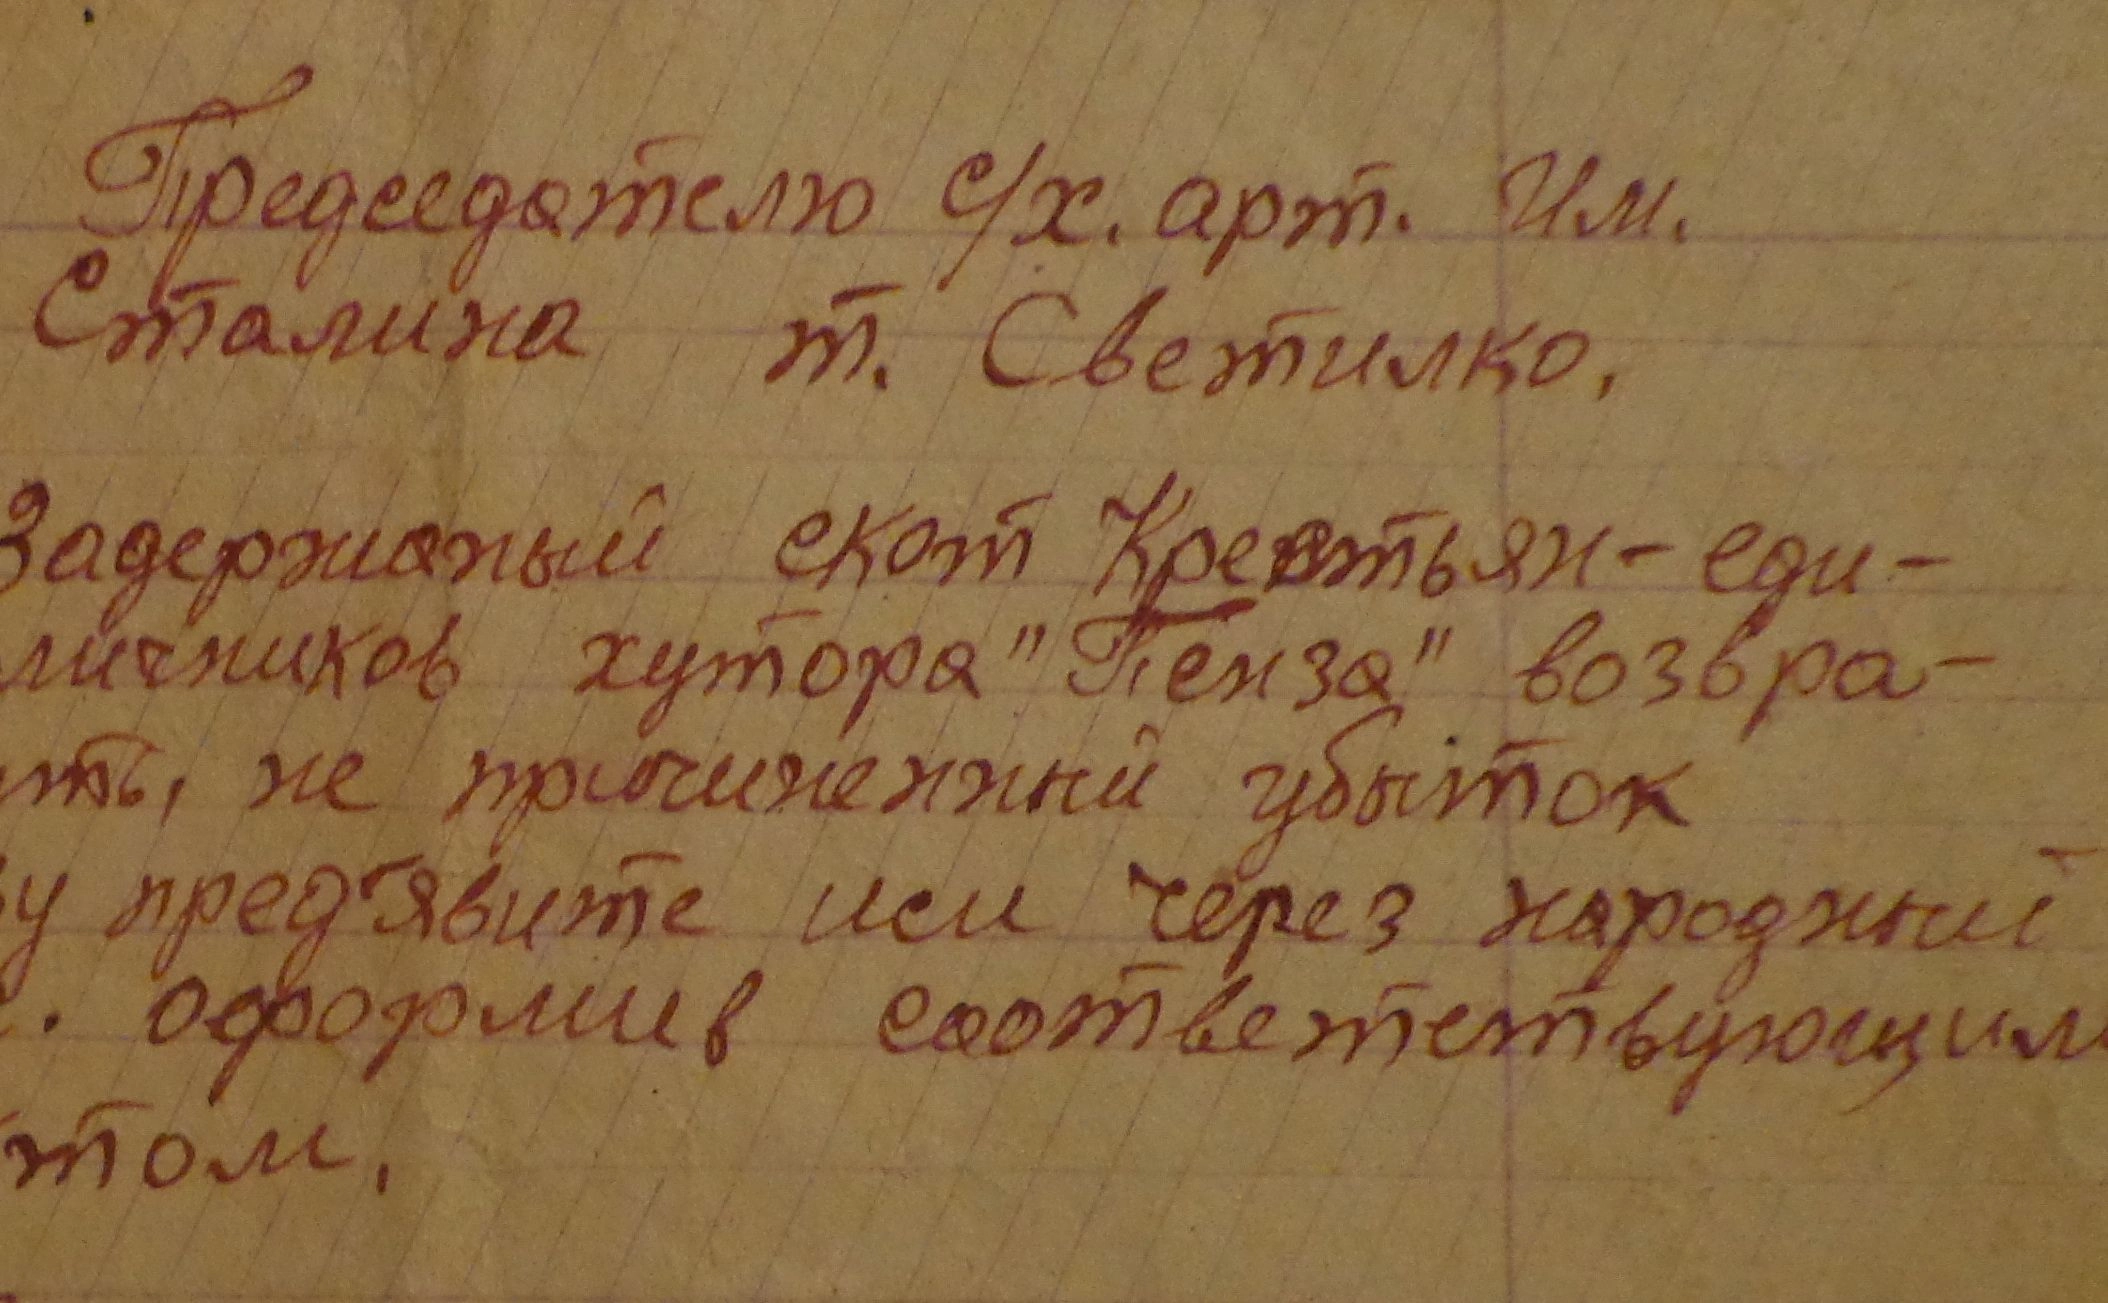 Председателю с/х. арт. Им.
Сталина т. Светилко.
Задержаный скот Крестьян-еди-
личников хутора "Пенза" возвра-
ить, не причиненный убыток
ву пред'явите иси через народный
оформив соответствующим
том.